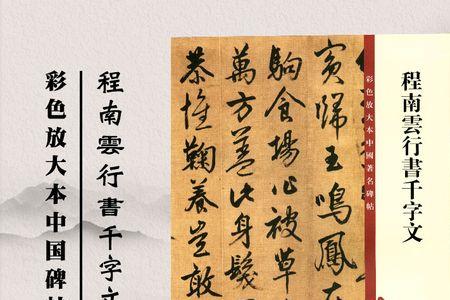 程南雲行書千字文
彩色放大本中國著名碑帖
賓歸王鳴鳳在
駒食場化被草
萬方蓋此身髮
恭惟鞠養豈敢
程南雲行書千字文
彩色放大本中国碑